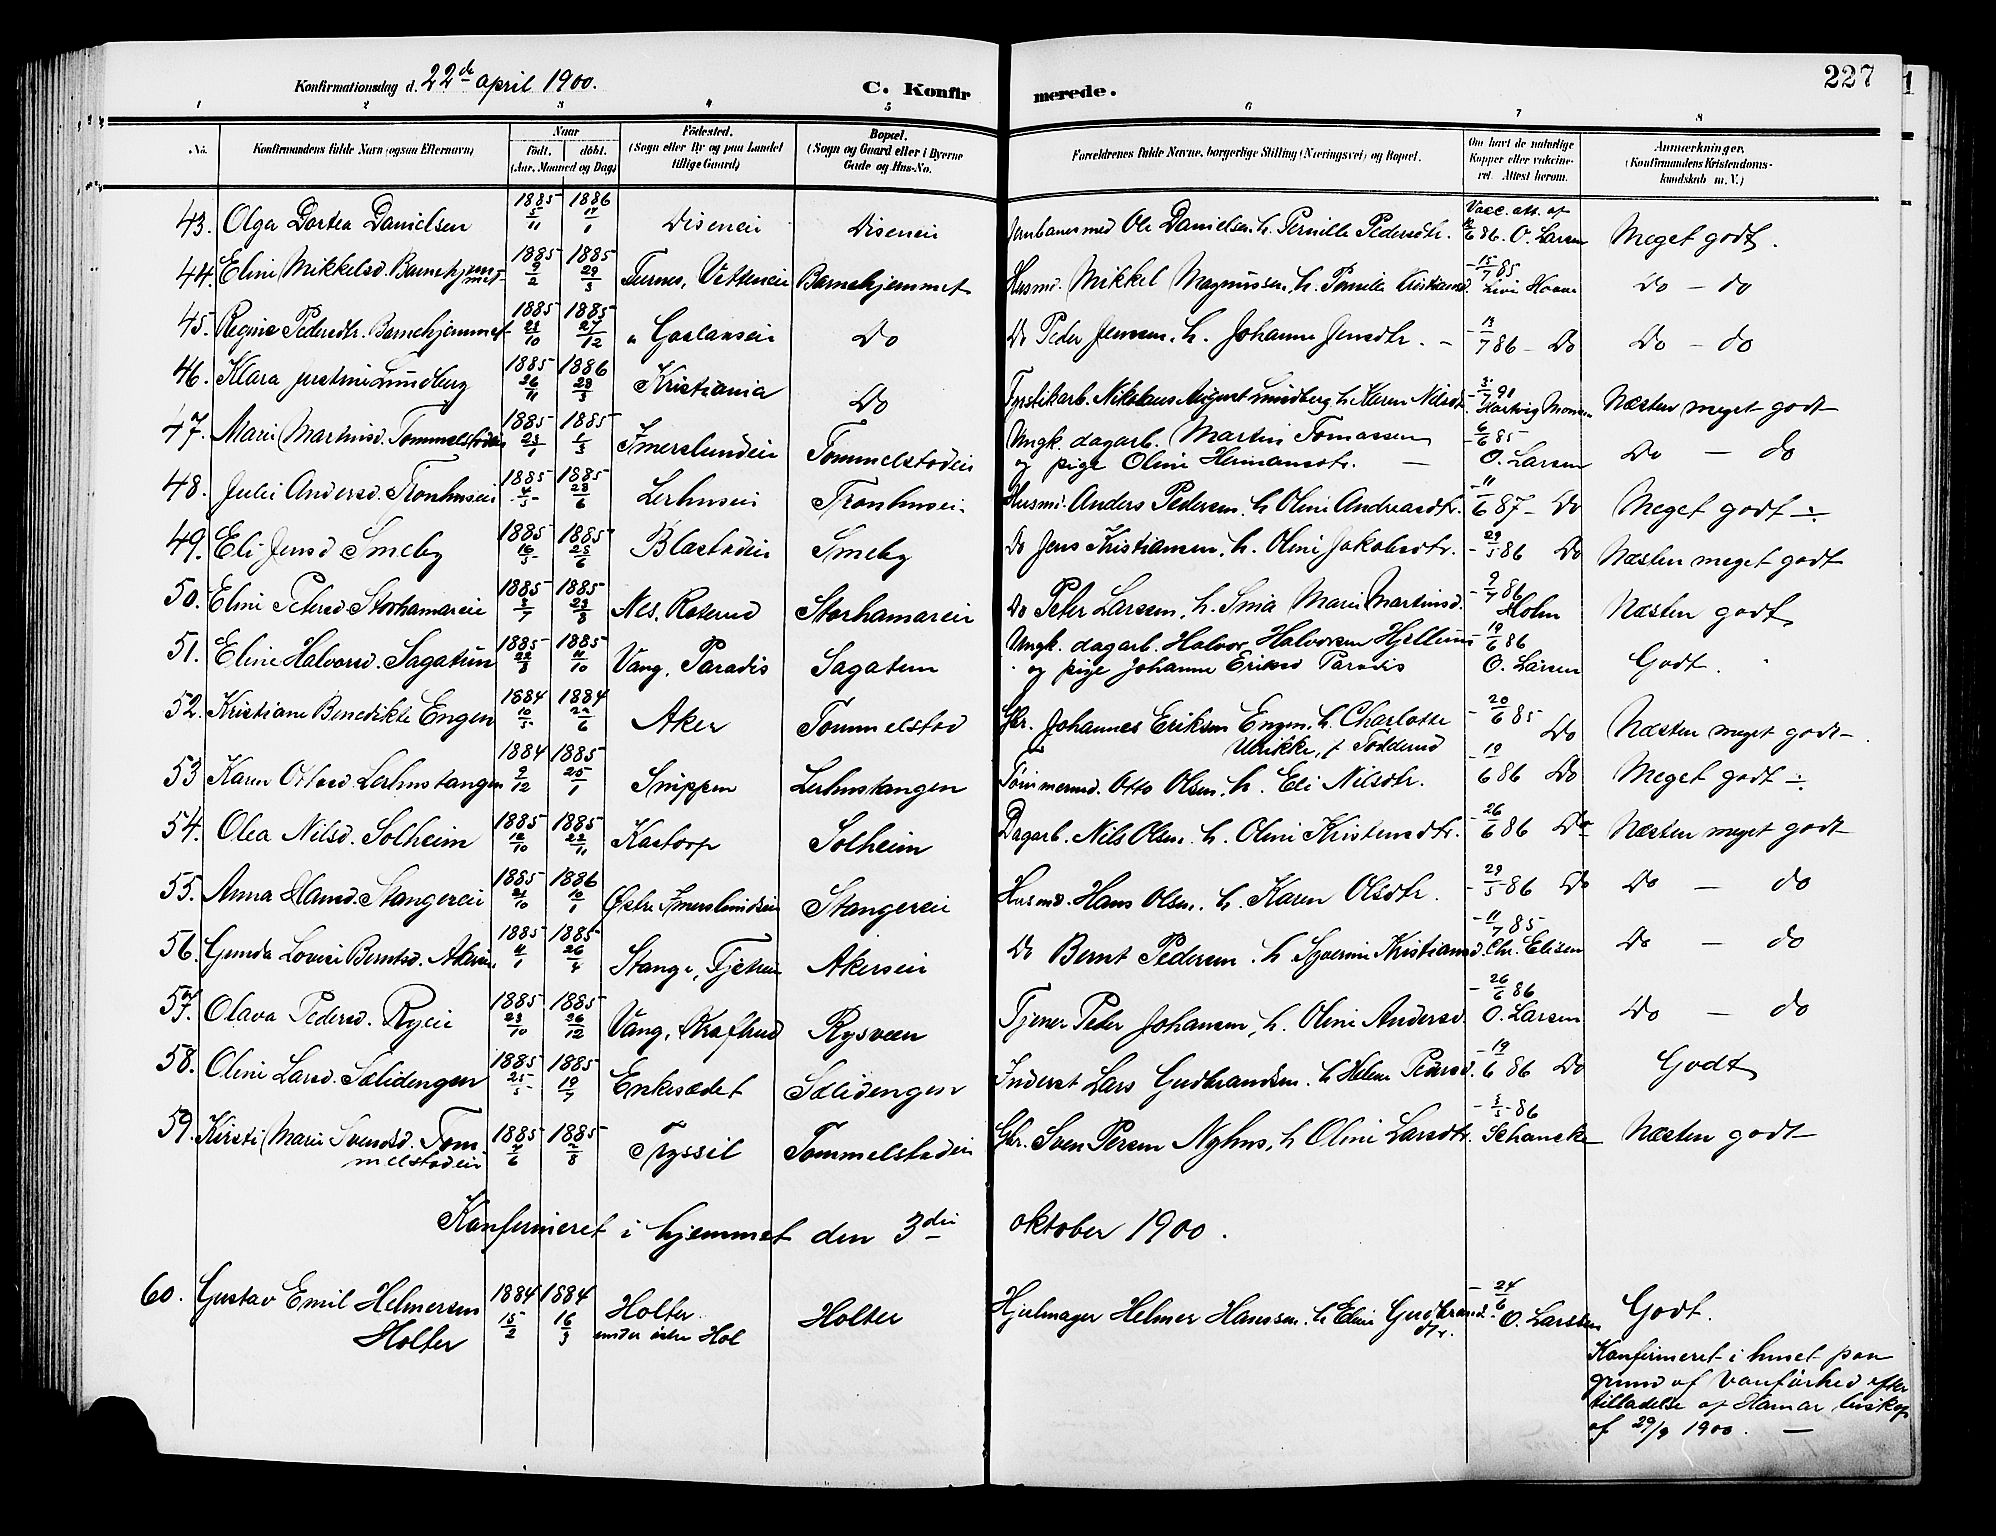 227
Konfirmationsdag d. 22de april 1900. C. Konfirmerede.
1 2 3 4 5 6 7 8
No. Konfirmandens fulde Navn (ogsaa Efternavn) Naar født. døbt. (Aar, Maaned og Dag) Fødested. (Sogn eller By og paa Landet tillige Gaard) Bopæl. (Sogn og Gaard eller i Byerne Gade og Hus-No. Forældrenes fulde Navne, borgerlige Stilling (Næringsvei) og Bopæl. Om havt de naturlige Kopper eller vakcineret. Attest herom. Anmærkninger. (Konfirmandens Kristendomskundskab m. V.)
43. Olga Dortea Danielsen 1885 5/11 1886 17/1 Diseneie Diseneie Jernbanemed Ole Danielsen, h. Pernille Pedersdtr. Vacc. att. af 12/6 86. O. Larsen Meget godt.
44. Eline Mikkelsd. Barnehjemmet 1885 9/2 1885 29/3 Furnes, Vetteneie Barnehjemmet Husmd. Mikkel Magnussen, h. Pernille Kristiansd. 15/7 85 Do - do
45. Regine Pedersdtr. Barnehjemmet 1885 23/10 1885 27/12 Do Do Peder Jensen, h. Johanne Jensdtr. 13/7 86 - Do Do - do
46. Klara Justine Lundberg 1885 26/11 1886 28/3 Kristiania Do Fyrstikarb. Nikolaus August Lundberg, h. Maren Nilsdtr. Næsten meget godt
47. Marie Martinsd. Tommelstadeie 1885 23/1 1885 1/3 Imerslundeie Tommelstadeie Ungk. dagarb. Martin Tomassen og pige Oline Hermansdtr. 6/6 85 O. Larsen Do - do
48. Julie Andersd. Tronhuseie 1885 4/5 1885 28/6 Lerhuseie Tronhuseie. Husmd. Anders Pedersen, h. Oline Andreasdtr. 11/6 87 - Do Meget godt ÷
49. Eli Jensd Smeby 1885 16/5 1885 25/6 Blæstadeie Smeby Do Jens Kristiansen, h. Oline Jakobsdtr. 29/5 86 Do Næsten meget godt
50. Eline Petersd Storhamareie 1885 3/7 1885 23/8 Nes. Roterud Storhamareie Do Peter Larsen, h. Sina Marie Martinsd. 9/7 86 Holm Næsten godt
51. Eline Halvorsd. Sagatun 1885 22/8 1885 11/10 Vang, Paradis Sagatun Ungk. dagarb. Halvor Halvorsen Hjellum og pige Johanne Eriksd Paradis 19/6 86 O. Larsen Godt.
52. Kristiane Benedikte Engen 1884 10/5 1884 22/6 Aker Tommelstad Gbr. Johannes Eriksen Engen, h. Charlotte Ulrikke, f. Todderud 20/6 85 Do Næsten meget godt.
53 Karen Ottosd. Lerhustangen 1884 9/12 1885 25/1 Snippen Lerhustangen Tømmermd. Otto Olsen, h. Eli Nilsdtr. 19/6 86 Do Meget godt ÷
54. Olea Nilsd. Solheim 1885 12/10 1885 22/11 Kastorp Solheim Dagarb. Nils Olsen, h. Oline Kristensdtr. 26/6 86 Do Næsten meget godt
55. Anna Hansd. Stangereie 1885 21/10 1886 10/1 Østre Imerslundseie Stangereie Husmd. Hans Olsen, h. Karen Olsdtr. 29/5 86 Do Do - do
56. Gunda Lovise Berntsd. Akerseie 1885 11/1 1885 26/4 Stange, Akerseie Do Bernt Pedersen, h. Syverine Kristiansd. 11/7 85 Chr. Elisen Do - do
57. Olava Pedersd. Ryeie 1885 23/10 1885 26/12 Vang, Kraftrud Rysveen Tjener Peder Johansen, h. Oline Andersd. 26/6 86 O. Larsen Do - do
58. Oline Larsd. Sælidengen 1885 25/5 1885 19/7 Enkesædet Sælidengen Inderst Lars Gudbrandsen, h. Helene Pedersd. 19/6 86 Do Godt
59. Kirsti Marie Svendsd. Tommelstadeie 1885 2/6 1885 2/8 Tryssil Tommelstadeie Gbr. Sven Persen Nyhus, h. Oline Larsdtr. 3/5 86 Schancke Næsten godt
Konfirmeret i hjemmet den 3die oktober 1900.
60. Gustav Emil Helmersen Holter 1884 15/2 1884 16/3 Holter under østre Hol Holter Hjulmager Helmer Hanssen, h. Eline Gudbrandsdtr. 24/6 O. Larsen Godt.
Konfirmeret i huset paa
grund af vanførhed efter
tilladelse af Hamar biskop
af 29/9 1900. —